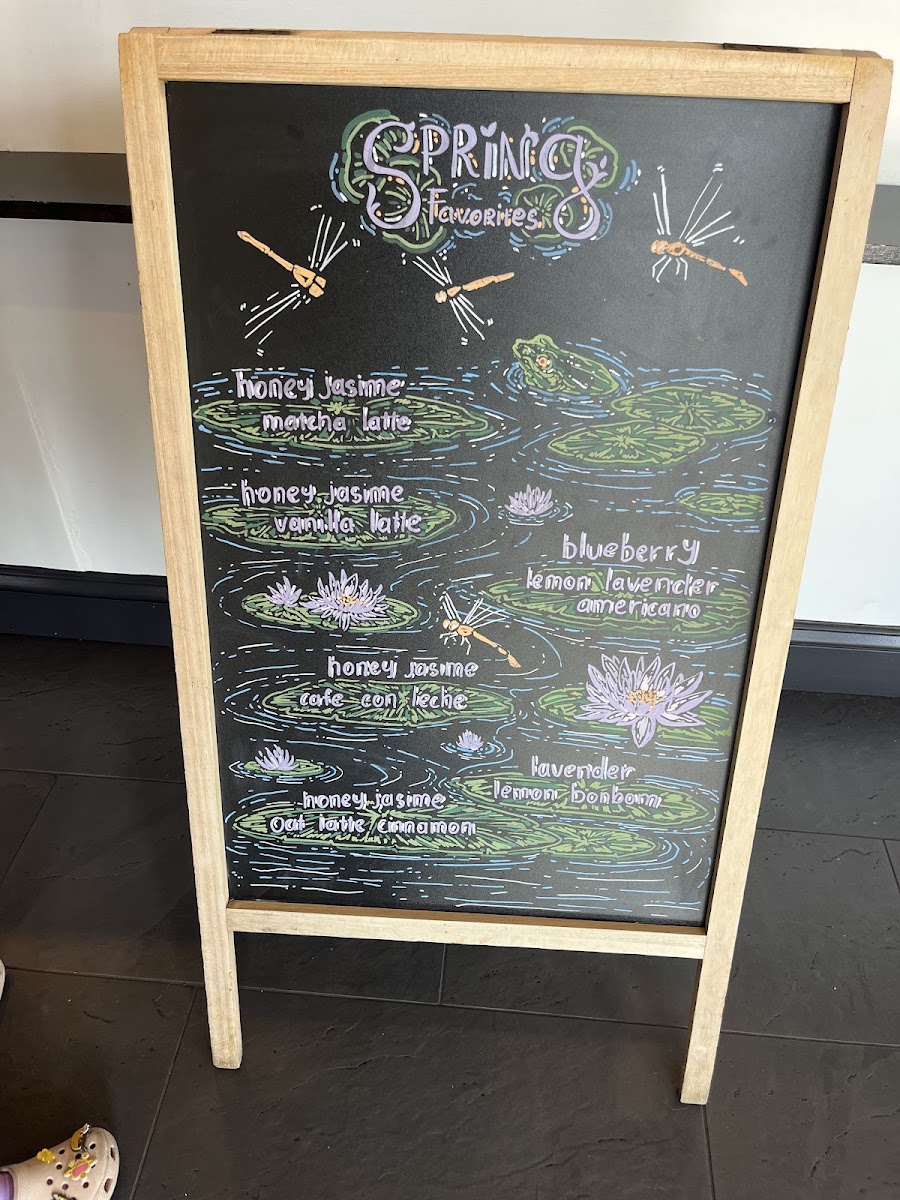 SPRING
FAVORITES
honey jasime
matcha latte
honey jasime
vanilla latte
blueberry
lemon lavender
americano
honey jasime
cafe con leche
lavender
lemon bonbom
honey jasime
Oat latte cinnamon